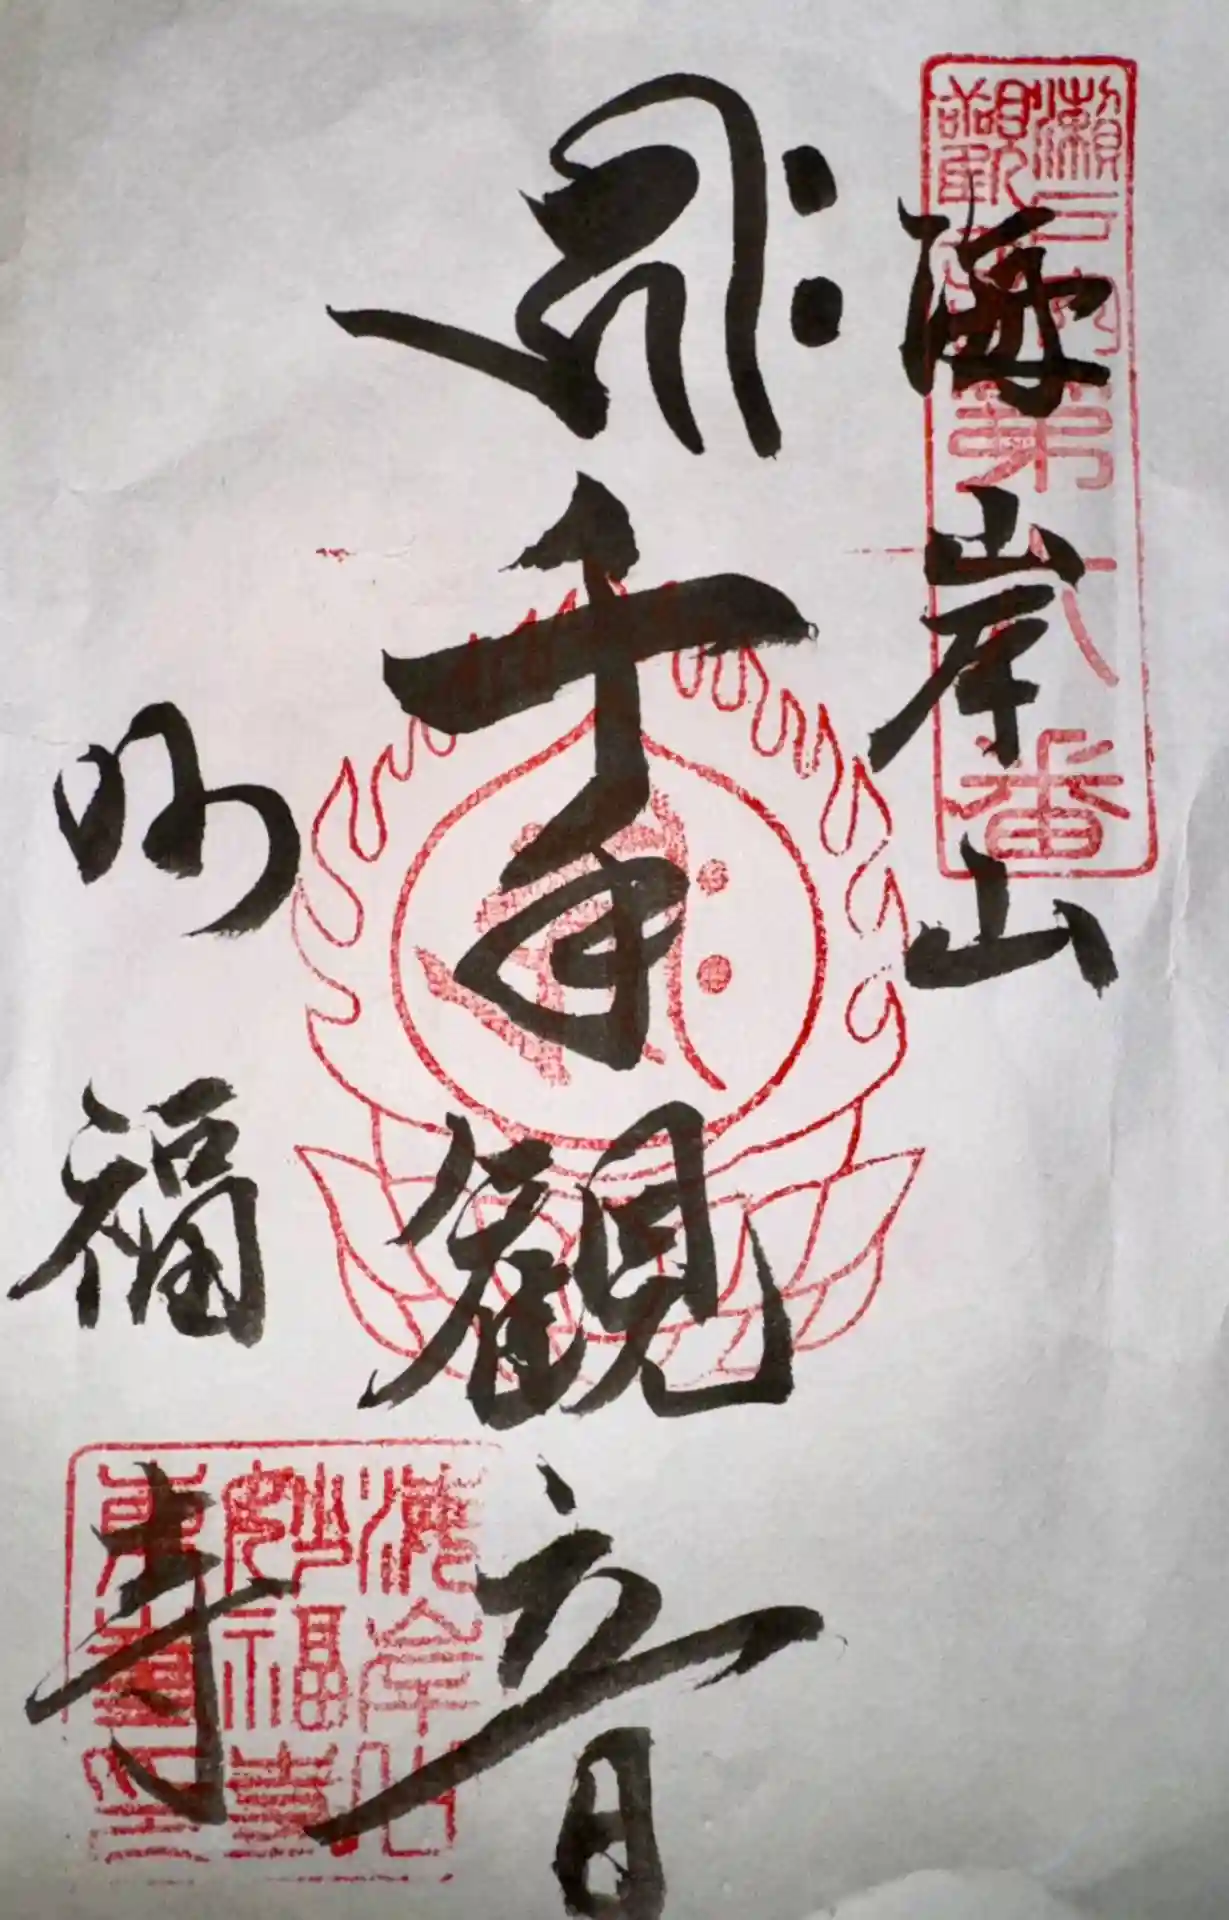 瀬戸内
第八番
海岸山
𑖮𑖿𑖨𑖱𑖾
千手観音
妙福寺
海岸山
妙福寺